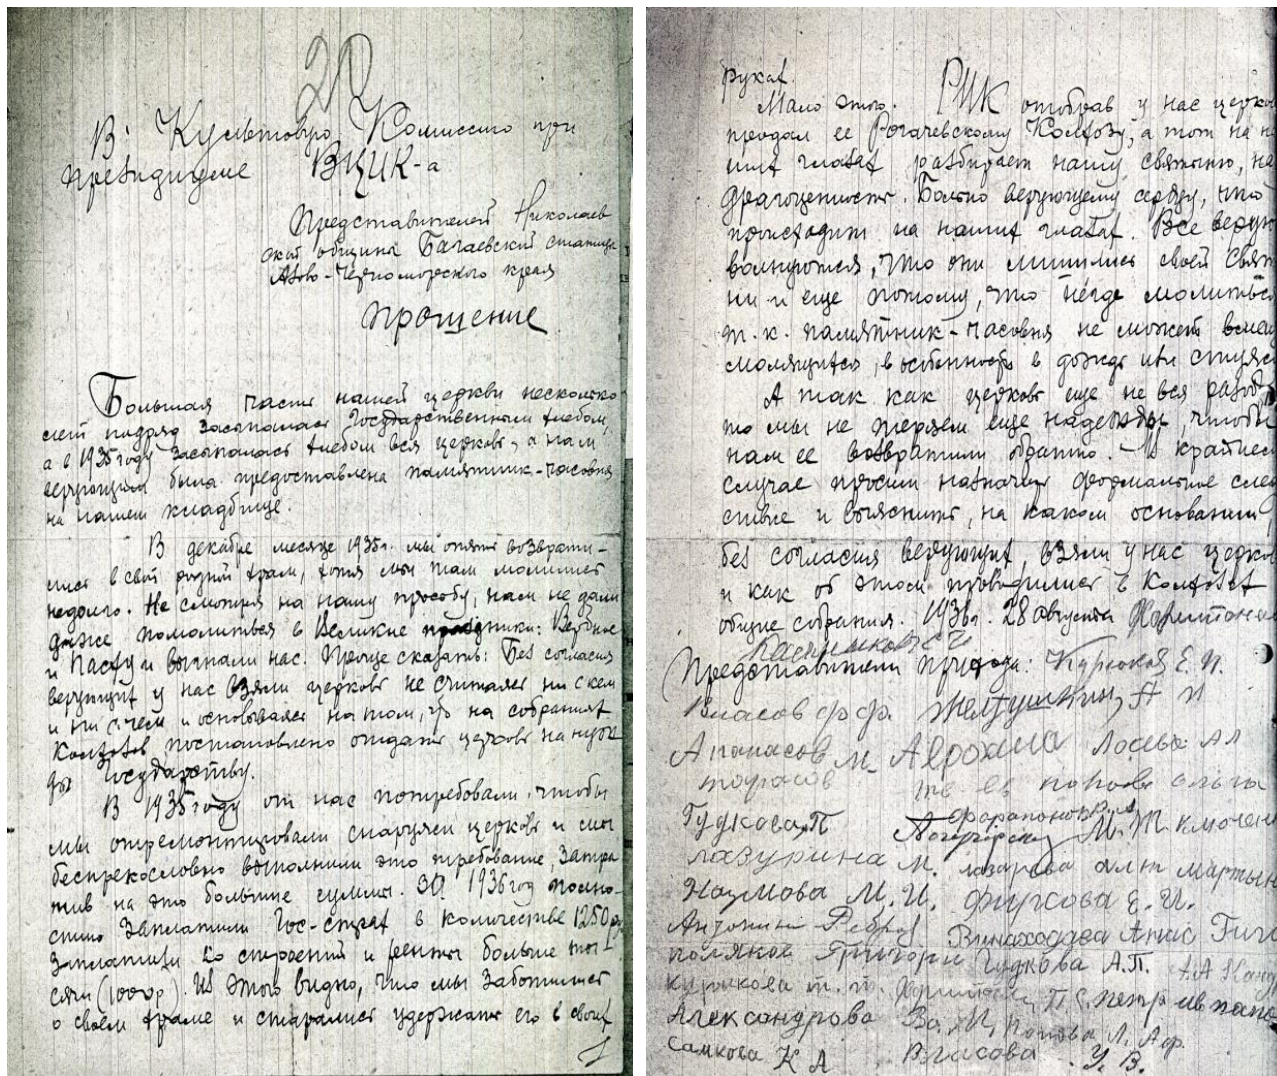 20
В Культовую Комиссию при
президиуме ВЦИК-а
Представителей Николаев
ской общины Багаевской станицы
Азово-Черноморского края
Прошение
Большая часть нашей церкви несколько
лет подряд засыпалась Государственным хлебом,
а в 1935 году засыпалась хлебом вся церковь, а нам
верующим была предоставлена памятник-часовня
на нашем кладбище.
В декабре месяце 1935г. мы опять возврати-
лись в свой родной храм, хотя мы там молились
недолго. Не смотря на нашу прозбу, нам не дали
даже помолиться в Великие праздники: Вербное
и Пасху и выгнали нас. Проще сказать: Без согласия
верующих у нас взяли церковь не считаясь ни с кем
и ни с чем и основываясь на том, что на собраниях
Колхозов постановлено отдать церковь на нуж
ды Государству.
В 1935 году от нас потребовали, чтобы
мы отремонтировали снаружи церковь и мы
беспрекословно выполнили это требование, затра
тив на это большие суммы. За 1936 год полно-
стью заплатили Гос-страх в количестве 1250 р.
заплатили со строений и ренты больше ты
сячи (1000р). Из этого видно, что мы заботились
о своем храме и старались удержать его в своих
1
руках.
Мало этого. РИК отобрав у нас церков
продал ее Рогачевскому Колхозу, а тот на на
ших глазах разбирает нашу святыню, на
драгоценность. Больно верующему сердцу, что
происходит на наших глазах. Все верую
волнуются, что они лишились своей Святы
ни и еще потому, что негде молиться
т.к. памятник-часовня не может вмес
молящихся, в особенность в дождь или стужу
А так как церковь еще не вся разоб
то мы не теряем еще надежды, чтобы
нам ее возвратили обратно. – В крайнем
случае просим назначить формальное след
ствие и выяснить, на каком основании,
без согласия верующих, взяли у нас церков
и как об этом проводились в Колхозах
общие собрания. 1936г. 28 августа Харитонов
Представители прихода: Курюков Е. П.
Власов ф ф. Желтушкин, А И
Апанасов М. Лосева Ал
тарасов попова ольга
Гудкова П М. Т. Ключен
лазурина М. лазарева мартын
Наумова М. И. Фирсова Е. И.
Антонин Ребров Винаходава Анас
поляков Григори Гудкова А.П.
курюкова т. петр
Александрова попова Л.
Самкова К А Власова У. В.